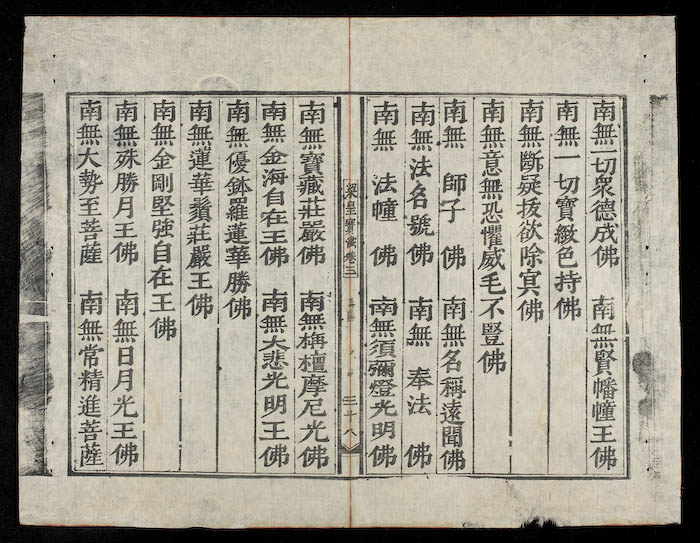 南無一切衆德成佛　南無賢幡幢王佛
南無一切寶緻色持佛
南無斷疑拔欲除冥佛
南無意無恐懼威毛不豎佛
南無師子佛　南無名稱遠聞佛
南無法名號佛　南無奉法佛
南無法幢佛　南無須彌燈光明佛
梁皇寶懺卷三　三十八
南無寶藏莊嚴佛　南無栴檀摩尼光佛
南無金海自在王佛　南無大悲光明王佛
南無優鉢羅蓮華勝佛
南無蓮華鬚莊嚴王佛
南無金剛堅強自在王佛
南無殊勝月王佛　南無日月光王佛
南無大勢至菩薩　南無常精進菩薩